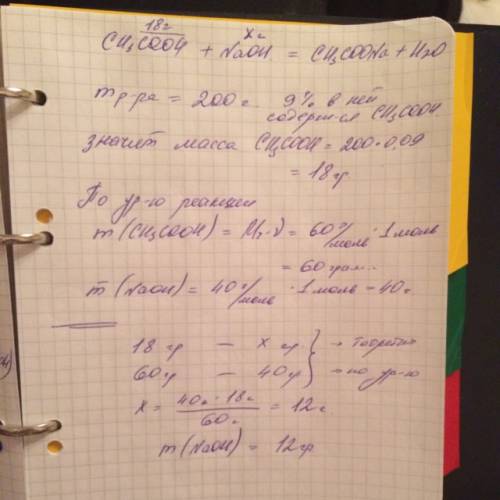 18г хг
CH3COOH + NaOH = CH3COONa + H2O
m р-ра = 200г. 9% в ней
содерж-ся CH3COOH.
значит масса CH3COOH = 200 · 0,09
= 18гр
По ур-ю реакции
m (CH3COOH) = Mr · ν = 60 г/моль · 1 моль
= 60 грам..
m (NaOH) = 40 г/моль · 1 моль = 40г
18 гр — х гр. } →
60гр — 40гр } → по ур-ю
x = 40г · 18г / 60г = 12г
m (NaOH) = 12гр